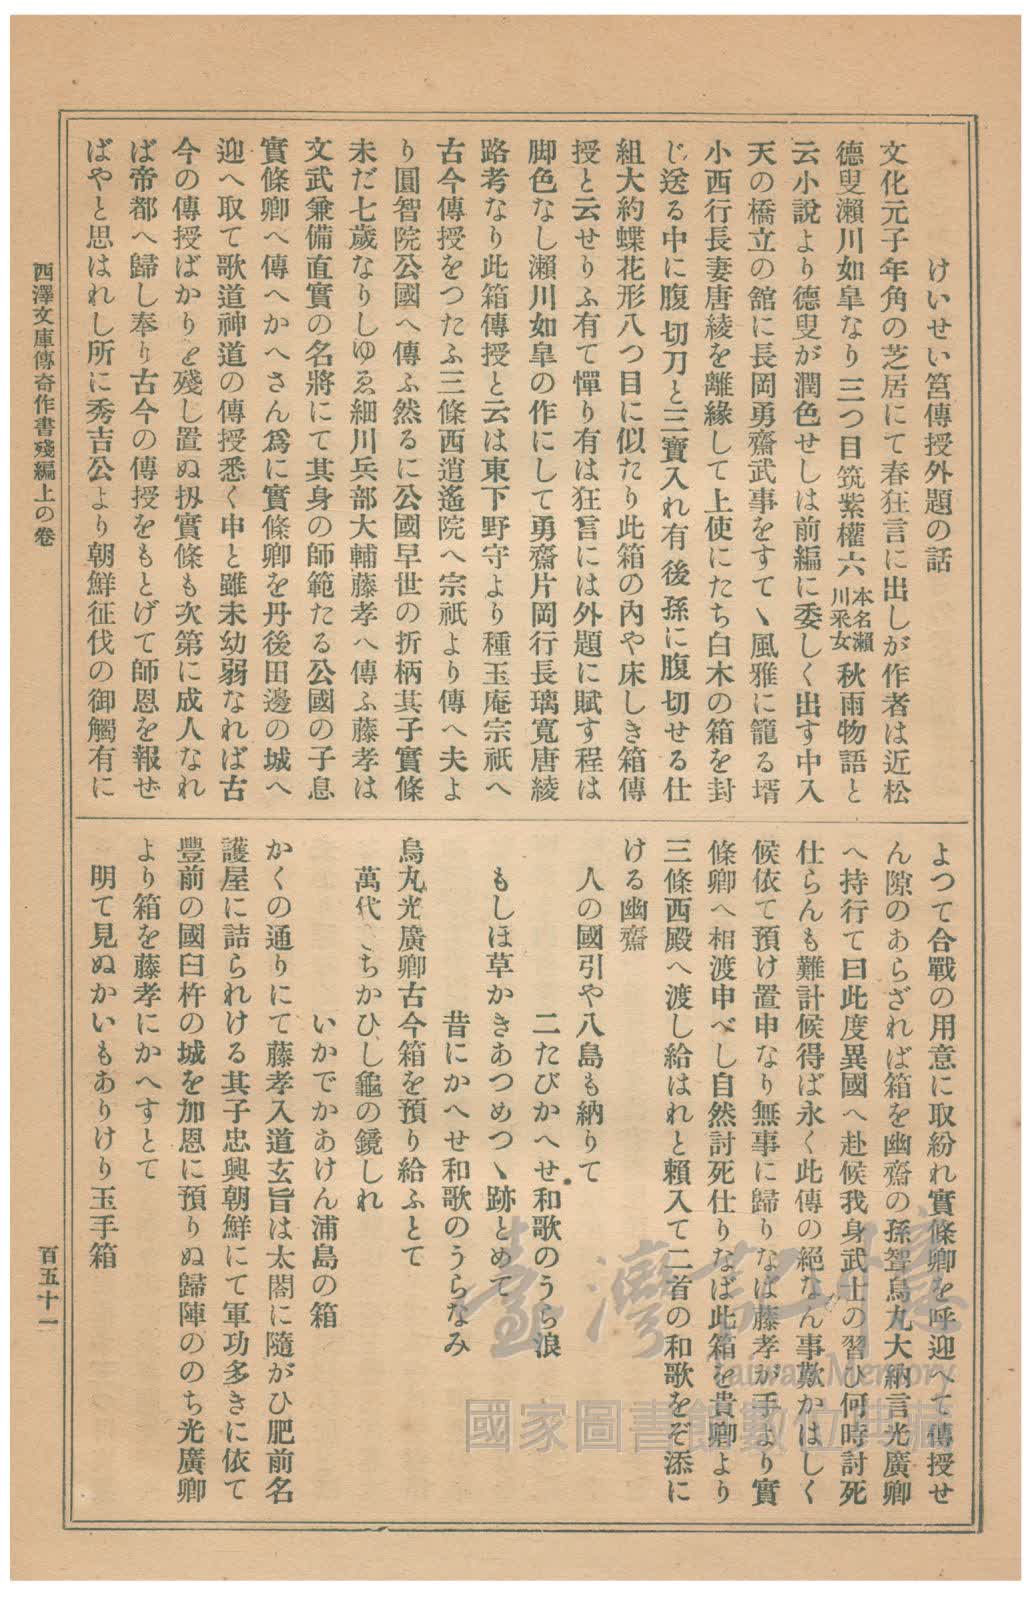 けいせい筥傳授外題の話
文化元子年角の芝居にて春狂言に出しが作者は近松
德叟瀨川如皐なり三つ目筑紫權六本名瀨川采女秋雨物語と
云小說より德叟が潤色せしは前編に委しく出す中入
天の橋立の舘に長岡勇齋武事をすてゝ風雅に籠る壻
小西行長妻唐綾を離緣して上使にたち白木の箱を封
じ送る中に腹切刀と三寶入れ有後孫に腹切せる仕
組大約蝶花形八つ目に似たり此箱の內や床しき箱傳
授と云せりふ有て憚り有は狂言には外題に賦す程は
脚色なし瀨川如皐の作にして勇齋片岡行長璃寬唐綾
路考なり此箱傳授と云は東下野守より種玉庵宗祇へ
古今傳授をつたふ三條西逍遙院へ宗祇より傳へ夫よ
り圓智院公國へ傳ふ然るに公國早世の折柄其子實條
未だ七歲なりしゆゑ細川兵部大輔藤孝へ傳ふ藤孝は
文武兼備直實の名將にて其身の師範たる公國の子息
實條卿へ傳へかへさん爲に實條卿を丹後田邊の城へ
迎へ取て歌道神道の傳授悉く申と雖未幼弱なれば古
今の傳授ばかりを殘し置ぬ扨實條も次第に成人なれ
ば帝都へ歸し奉り古今の傳授をもとげて師恩を報ぜ
ばやと思はれし所に秀吉公より朝鮮征伐の御觸有に
よつて合戰の用意に取紛れ實條卿を呼迎へて傳授せ
ん隙のあらざれば箱を幽齋の孫聟烏丸大納言光廣卿
へ持行て曰此度異國へ赴候我身武士の習ひ何時討死
仕らんも難計候得ば永く此傳の絕なん事歎かはしく
候依て預け置申なり無事に歸りなば藤孝が手より實
條卿へ相渡申べし自然討死仕りなば此箱を貴卿より
三條西殿へ渡し給はれと賴入て二首の和歌をぞ添に
ける幽齋
人の國引や八島も納りて
二たびかへせ和歌のうら浪
もしほ草かきあつめつゝ跡とめて
昔にかへせ和歌のうらなみ
烏丸光廣卿古今箱を預り給ふとて
萬代とちかひし龜の鏡しれ
いかでかあけん浦島の箱
かくの通りにて藤孝入道玄旨は太閤に隨がひ肥前名
護屋に詰られける其子忠興朝鮮にて軍功多きに依て
豐前の國臼杵の城を加恩に預りぬ歸陣ののち光廣卿
より箱を藤孝にかへすとて
明て見ぬかいもありけり玉手箱
西澤文庫傳奇作書殘編上の卷
百五十一
臺灣記憶
Taiwan Memory
國家圖書館數位典藏